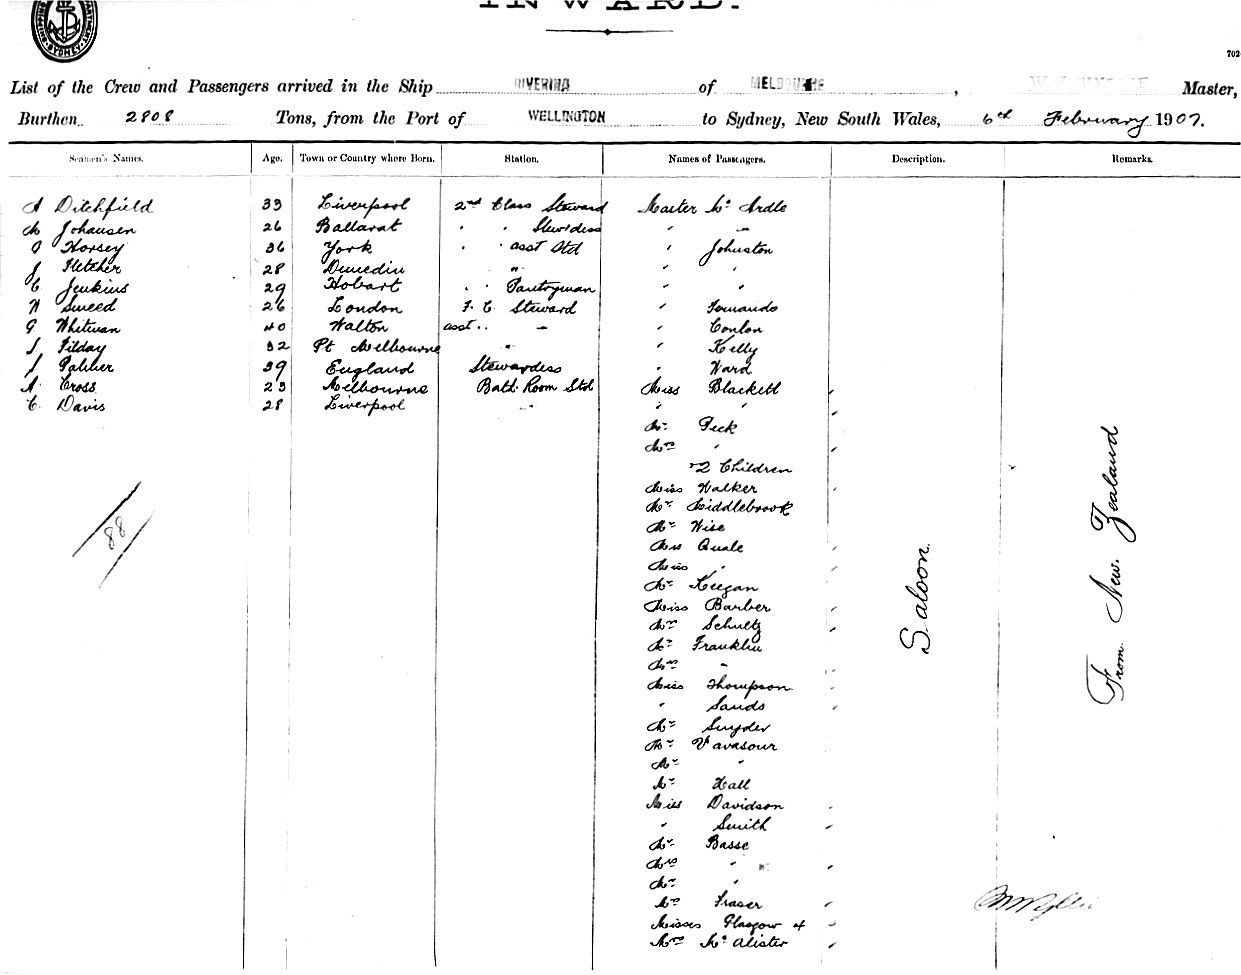 INWARD.
SYDNEY
702
List of the Crew and Passengers arrived in the Ship RIVERINA of MELBOURNE, Master,
Burthen 2808 Tons, from the Port of WELLINGTON to Sydney, New South Wales, 6th February 1907.
Seamen's Names. Age. Town or Country where Born. Station. Names of Passengers. Description. Remarks.
A Ditchfield 33 Liverpool 2nd Class Steward Master Mc Ardle
M Johansen 26 Ballarat " " Stewardess " "
J Horsey 36 York " " asst Std " Johnston
J Fletcher 28 Dunedin " " "
C Jenkins 29 Hobart " " Pantryman " "
W Smeed 26 London F. C. Steward " Fernando
G Whitman 40 Walton asst " " " " Conlon
J. Filday 32 Pt Melbourne " " Kelly
J 39 England Stewardess " Ward
A Cross 23 Melbourne Bath Room Std Miss Blackett
C. Davis 28 Liverpool " " "
Mr Peck
Mrs "
2 Children
Miss Walker
Mr Middlebrook
Mr Wise
Mrs Quale
Miss "
Mr Keegan
Miss Barber
Mrs Schultz
Mr Franklin
Mrs "
Miss Thompson
" Sands
Mr Snyder
Mr Vavasour
Mr "
Mr Hall
Miss Davidson
" Smith
Mr Basse
Mrs "
Mr "
Mrs Fraser
Misses Glasgow 4
Mrs Mc Alister
88
Saloon
From New Zealand